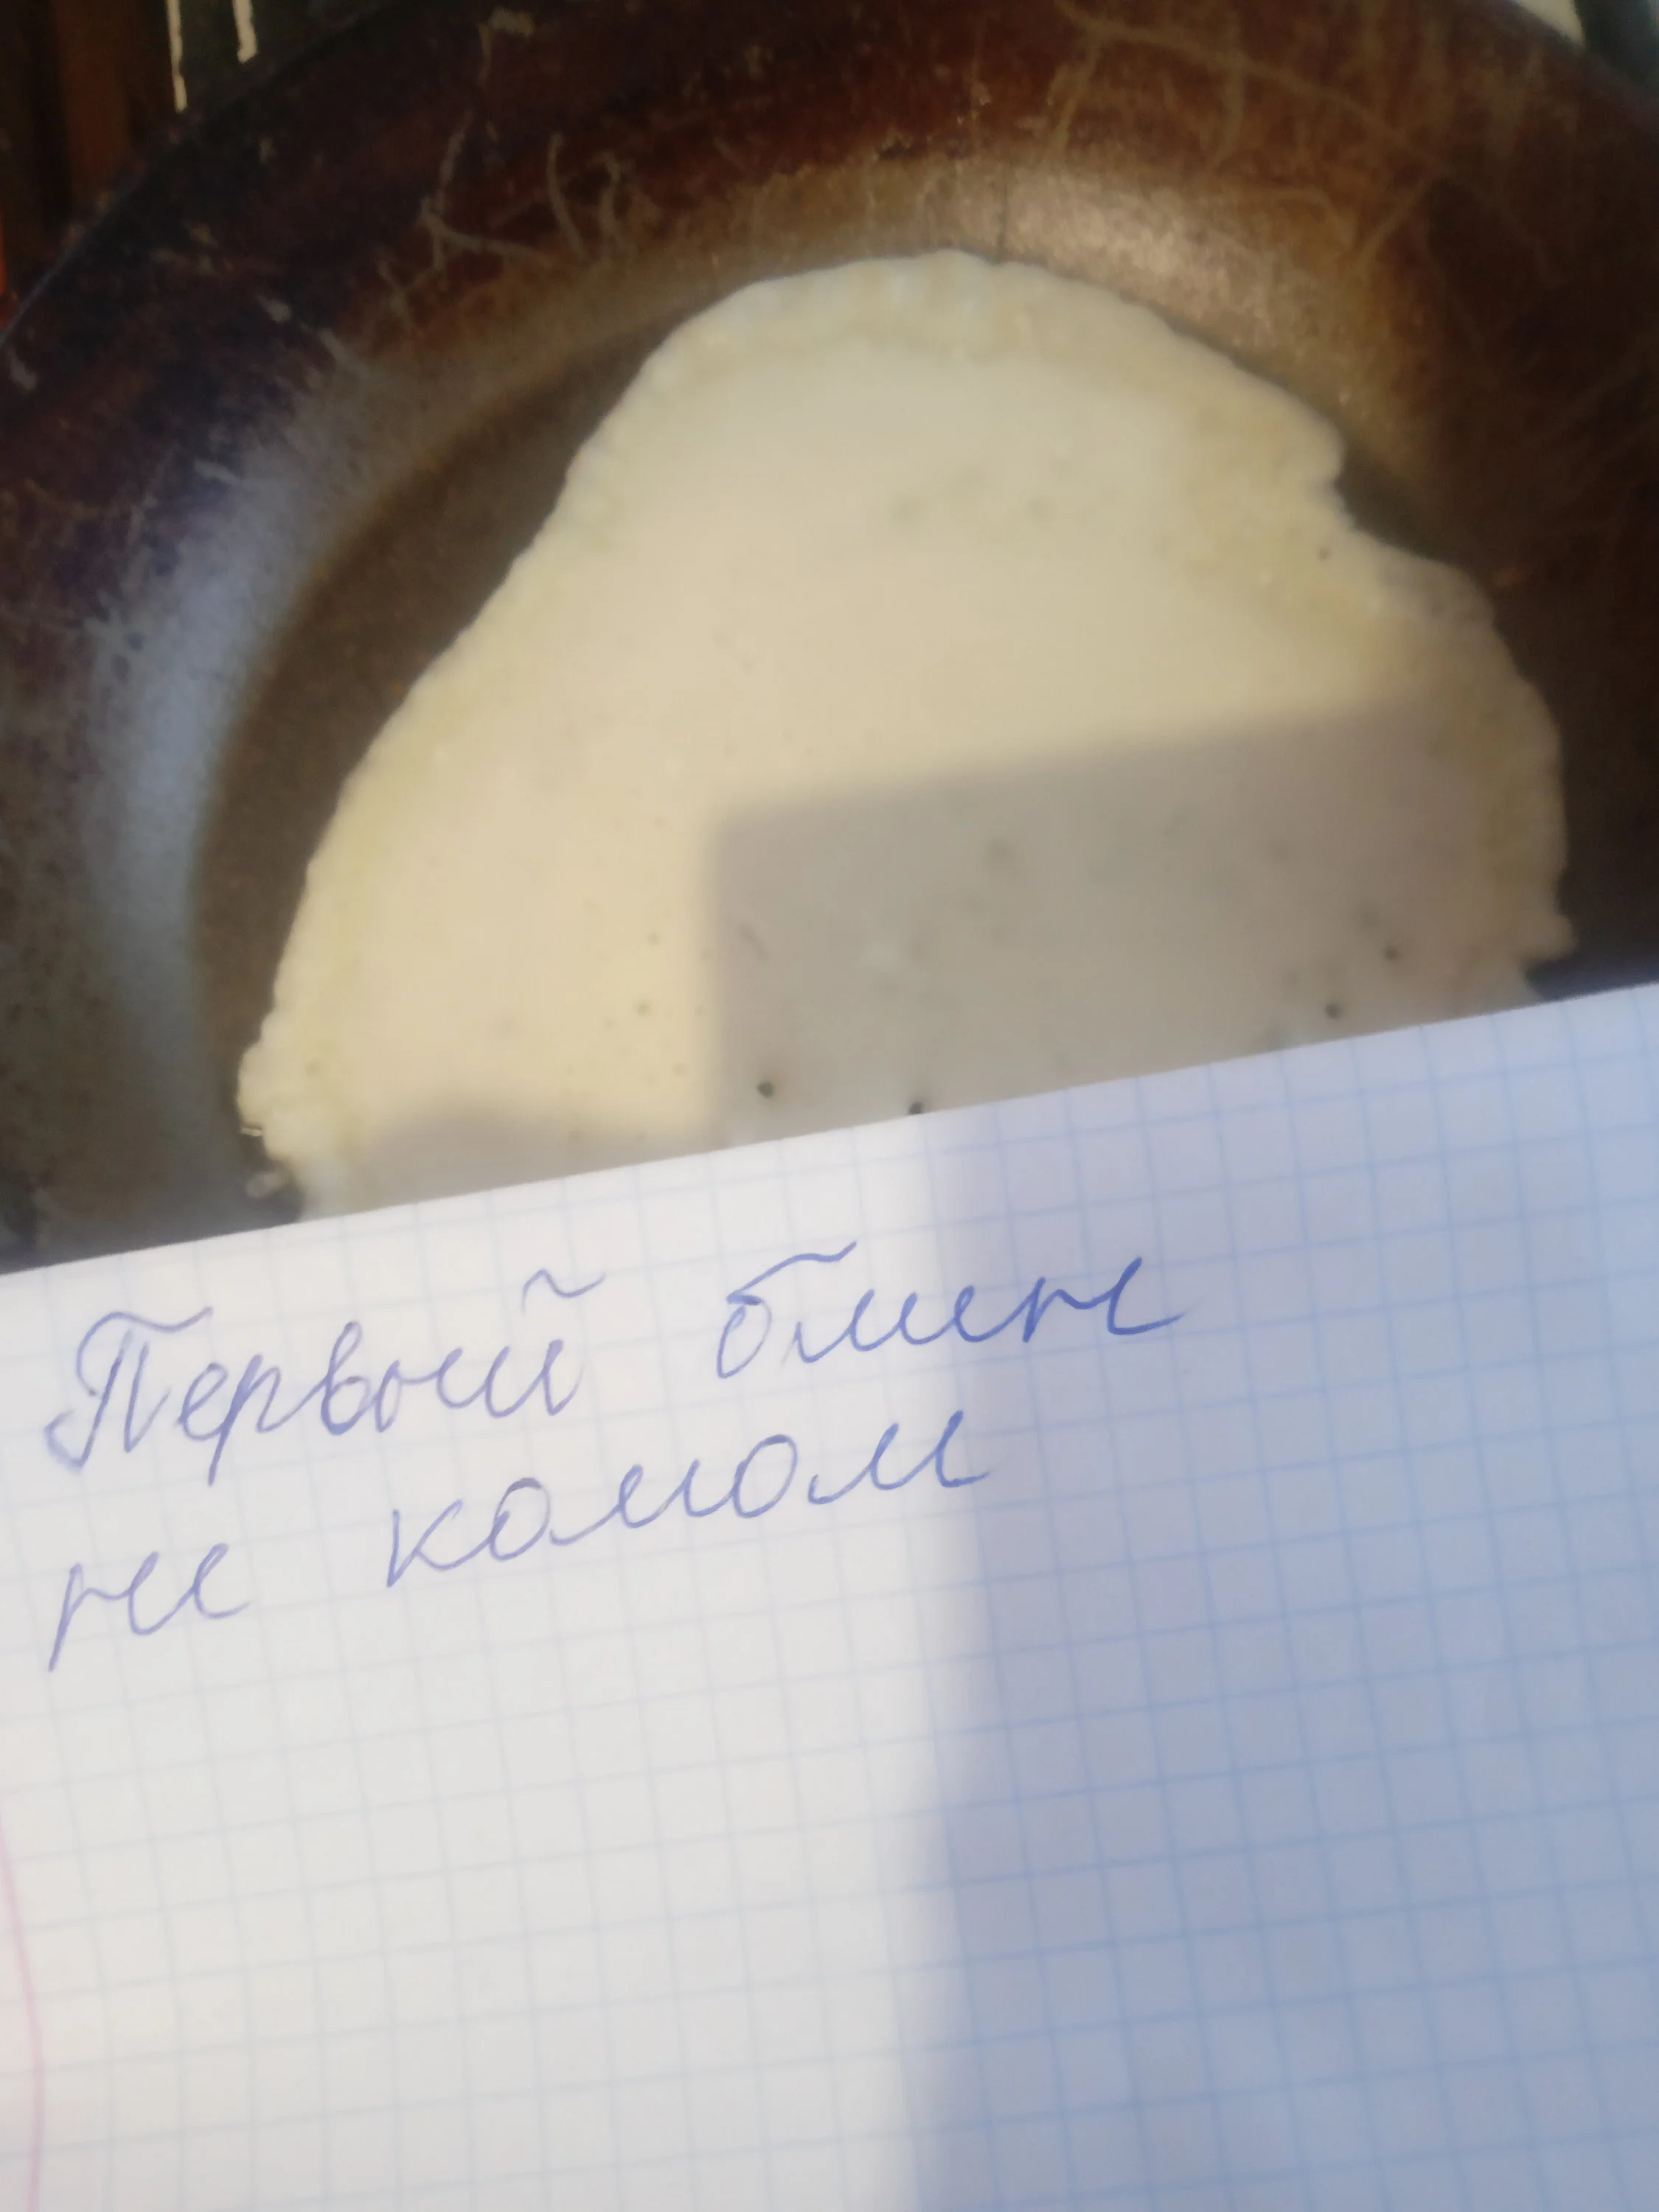 Первый блин
не комом